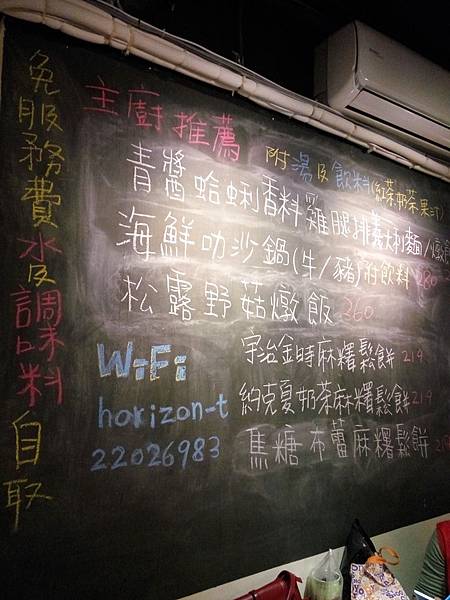 免服務費水及調味料自取
主廚推薦
附湯及飲料(紅茶奶茶果汁)
青醬蛤蜊香料雞腿排義大利麵/燉飯
海鮮叻沙鍋(牛/豬)附飲料 280
松露野菇燉飯 260
宇治金時麻糬鬆餅 219
約克夏奶茶麻糬鬆餅 219
焦糖布蕾麻糬鬆餅
WiFi
horizon-t
22026983